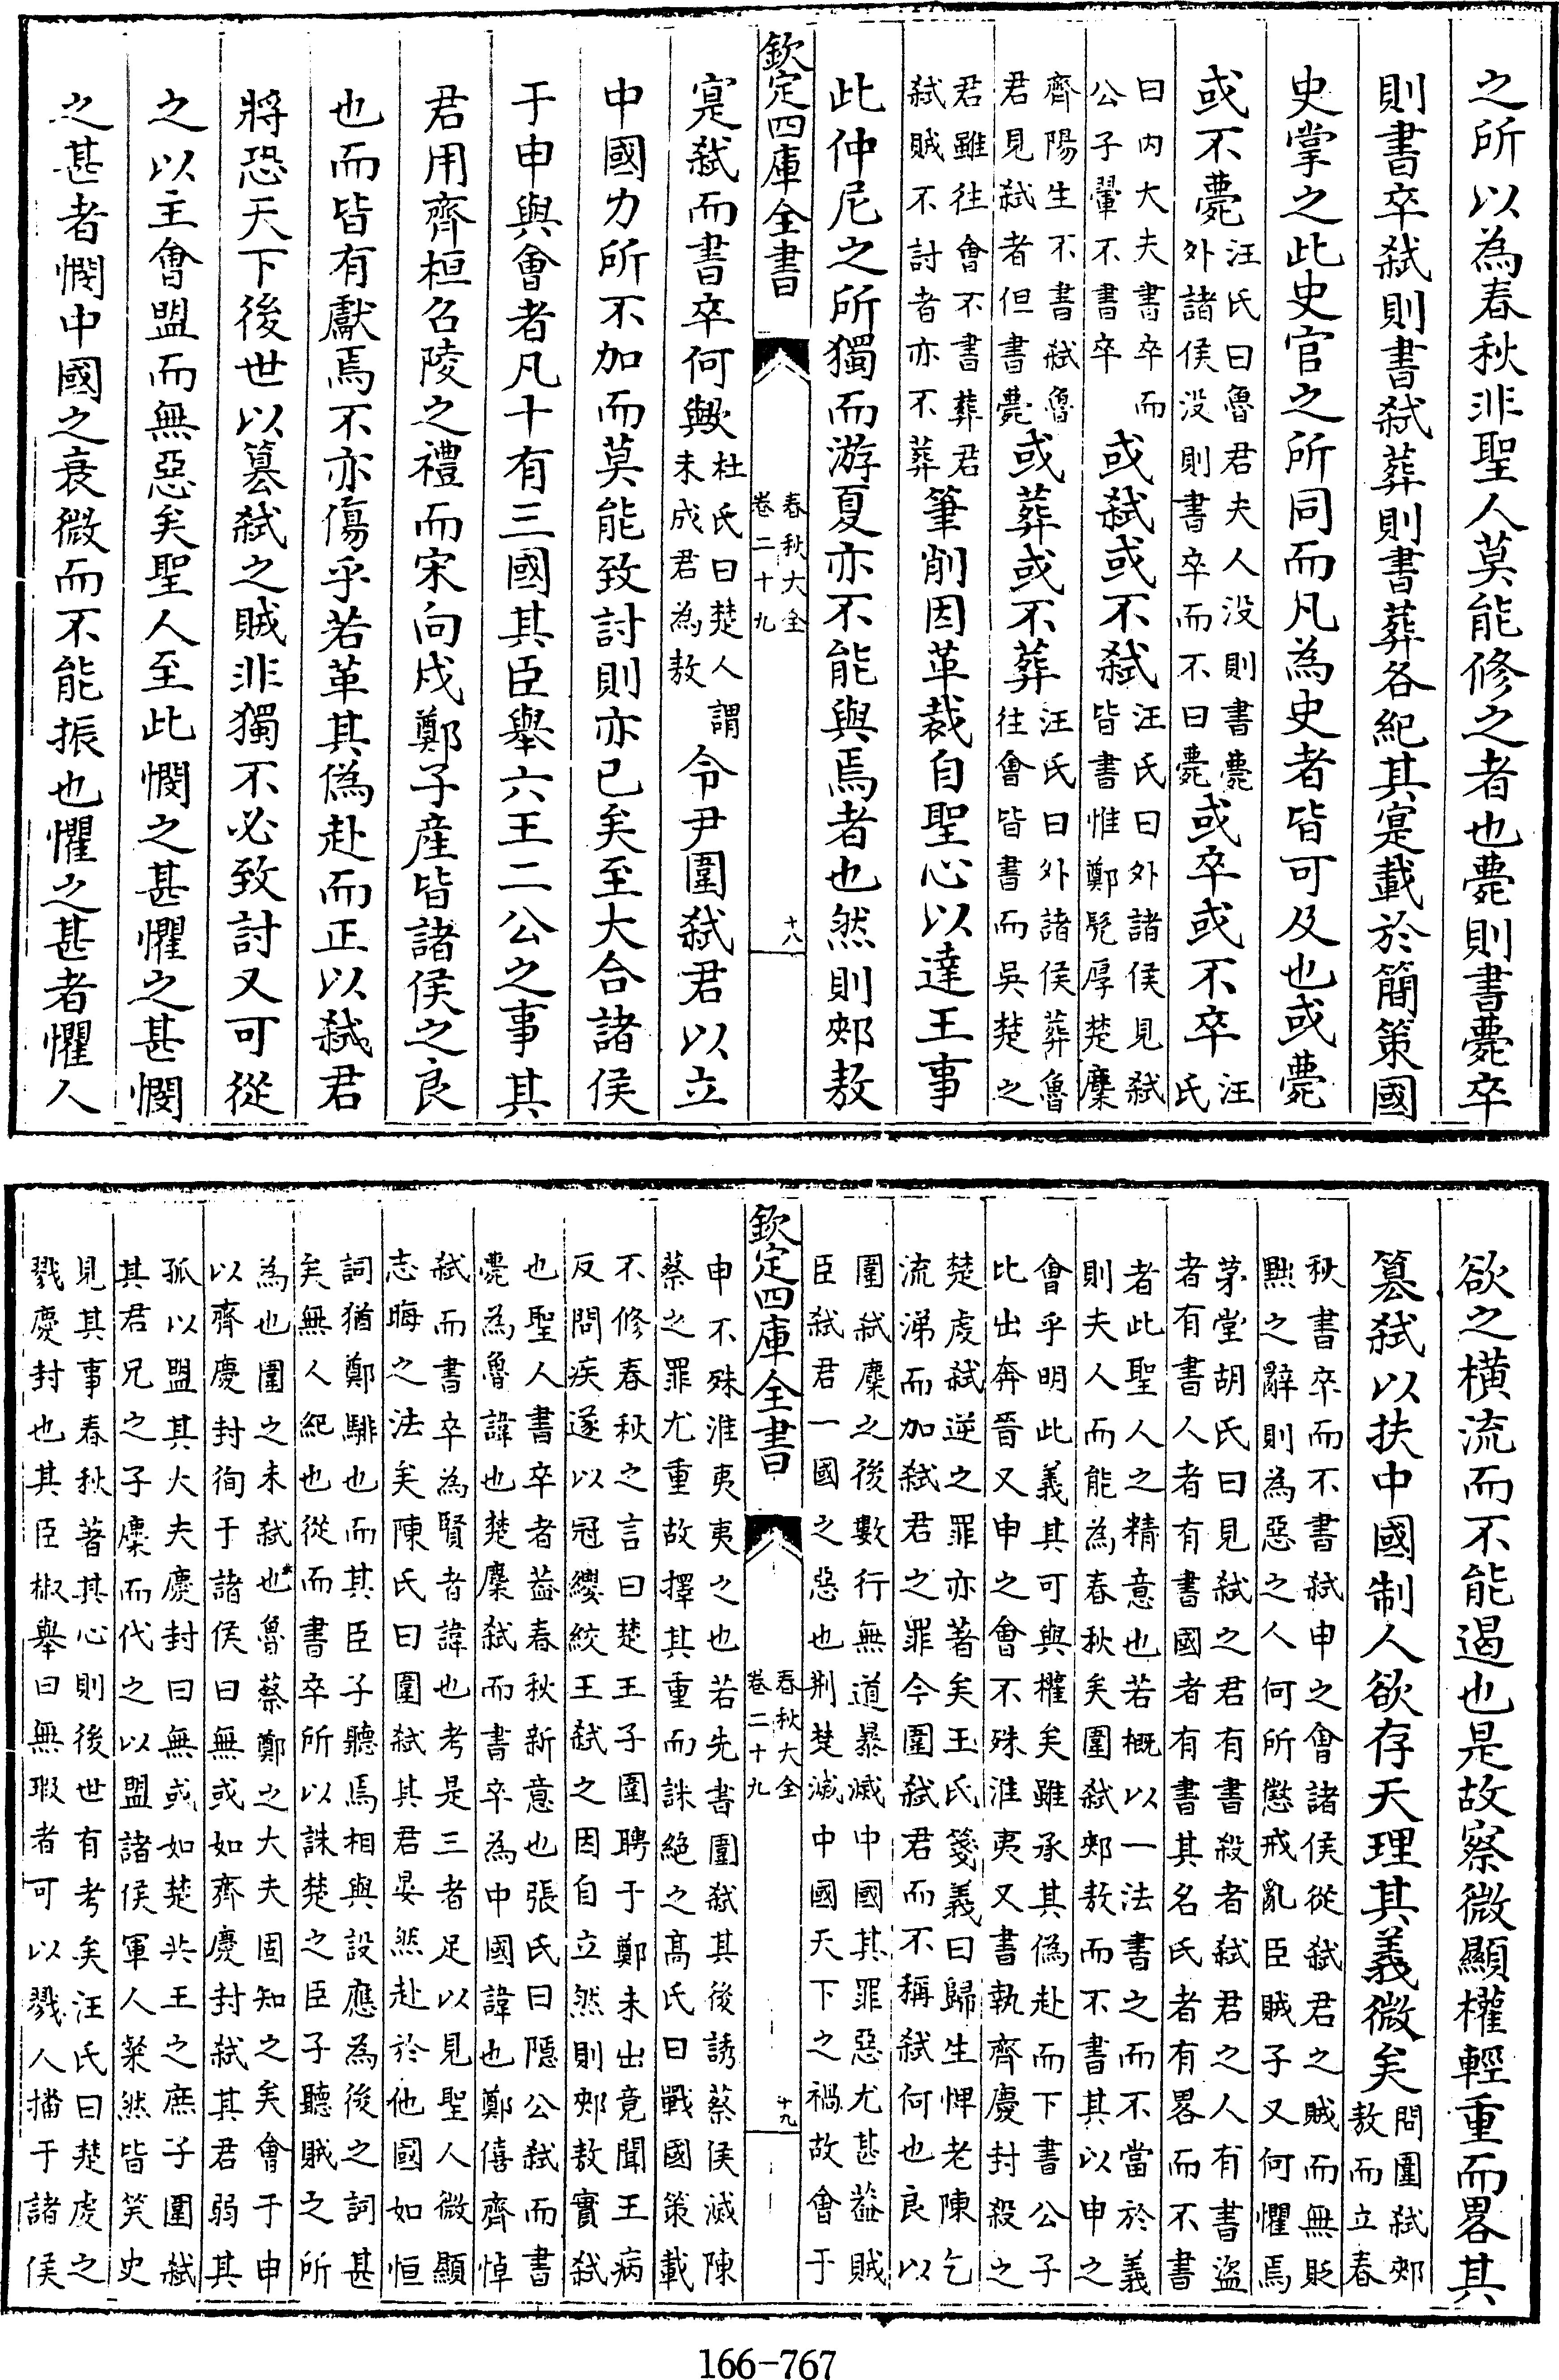 之所以為春秋非聖人莫能修之者也薨則書薨卒
則書卒弑則書弑葬則書葬各紀其寔載於簡策國
史掌之此史官之所同而凡為史者皆可及也或薨
或不薨汪氏曰魯君夫人没則書薨外諸侯没則書卒而不曰薨或卒或不卒汪氏
曰内大夫書卒而公子翬不書卒或弑或不弑汪氏曰外諸侯見弑皆書惟鄭髠厚楚麇
齊陽生不書弑魯君見弑者但書薨或葬或不葬汪氏曰外諸侯葬魯往會皆書而吳楚之
君雖往會不書葬君弑賊不討者亦不葬筆削因革裁自聖心以達王事
此仲尼之所獨而游夏亦不能與焉者也然則郟敖
欽定四庫全書
春秋大全
卷二十九
十八
寔弑而書卒何歟杜氏曰楚人謂未成君為敖令尹圍弑君以立
中國力所不加而莫能致討則亦已矣至大合諸侯
于申與會者凡十有三國其臣舉六王二公之事其
君用齊桓召陵之禮而宋向戌鄭子產皆諸侯之良
也而皆有獻焉不亦傷乎若革其偽赴而正以弑君
將恐天下後世以篡弑之賊非獨不必致討又可從
之以主會盟而無惡矣聖人至此憫之甚懼之甚憫
之甚者憫中國之衰微而不能振也懼之甚者懼人
欲之橫流而不能遏也是故察微顯權輕重而畧其
篡弑以扶中國制人欲存天理其義微矣問圍弑郟敖而立春
秋書卒而不書弑申之會諸侯從弑君之賊而無貶
黙之辭則為惡之人何所懲戒亂臣賊子又何懼焉
茅堂胡氏曰見弑之君有書殺者弑君之人有書盜
者有書人者有書國者有書其名氏者有畧而不書
者此聖人之精意也若概以一法書之而不當於義
則夫人而能為春秋矣圍弑郟敖而不書其以申之
會乎明此義其可與權矣雖承其偽赴而下書公子
比出奔晉又申之會不殊淮夷又書執齊慶封殺之
楚虔弑逆之罪亦著矣王氏箋義曰歸生憚老陳乞
流涕而加弑君之罪今圍弑君而不稱弑何也良以
圍弑麇之後數行無道暴滅中國其罪惡尤甚葢賊
臣弑君一國之惡也荆楚滅中國天下之禍故會于
欽定四庫全書
春秋大全
卷二十九
十九
申不殊淮夷夷之也若先書圍弑其後誘蔡侯滅陳
蔡之罪尤重故擇其重而誅絶之髙氏曰戰國策載
不修春秋之言曰楚王子圍聘于鄭未出竟聞王病
反問疾遂以冠纓絞王弑之因自立然則郟敖實弑
也聖人書卒者葢春秋新意也張氏曰隱公弑而書
薨為魯諱也楚麇弑而書卒為中國諱也鄭僖齊悼
弑而書卒為賢者諱也考是三者足以見聖人微顯
志晦之法矣陳氏曰圍弑其君晏然赴於他國如恒
詞猶鄭騑也而其臣子聽焉相與設應為後之詞甚
矣無人紀也從而書卒所以誅楚之臣子聽賊之所
為也圍之未弑也魯蔡鄭之大夫固知之矣會于申
以齊慶封徇于諸侯曰無或如齊慶封弑其君弱其
孤以盟其大夫慶封曰無或如楚共王之庶子圍弑
其君兄之子麇而代之以盟諸侯軍人粲然皆笑史
見其事春秋著其心則後世有考矣汪氏曰楚虔之
戮慶封也其臣椒舉曰無瑕者可以戮人播于諸侯
166-767